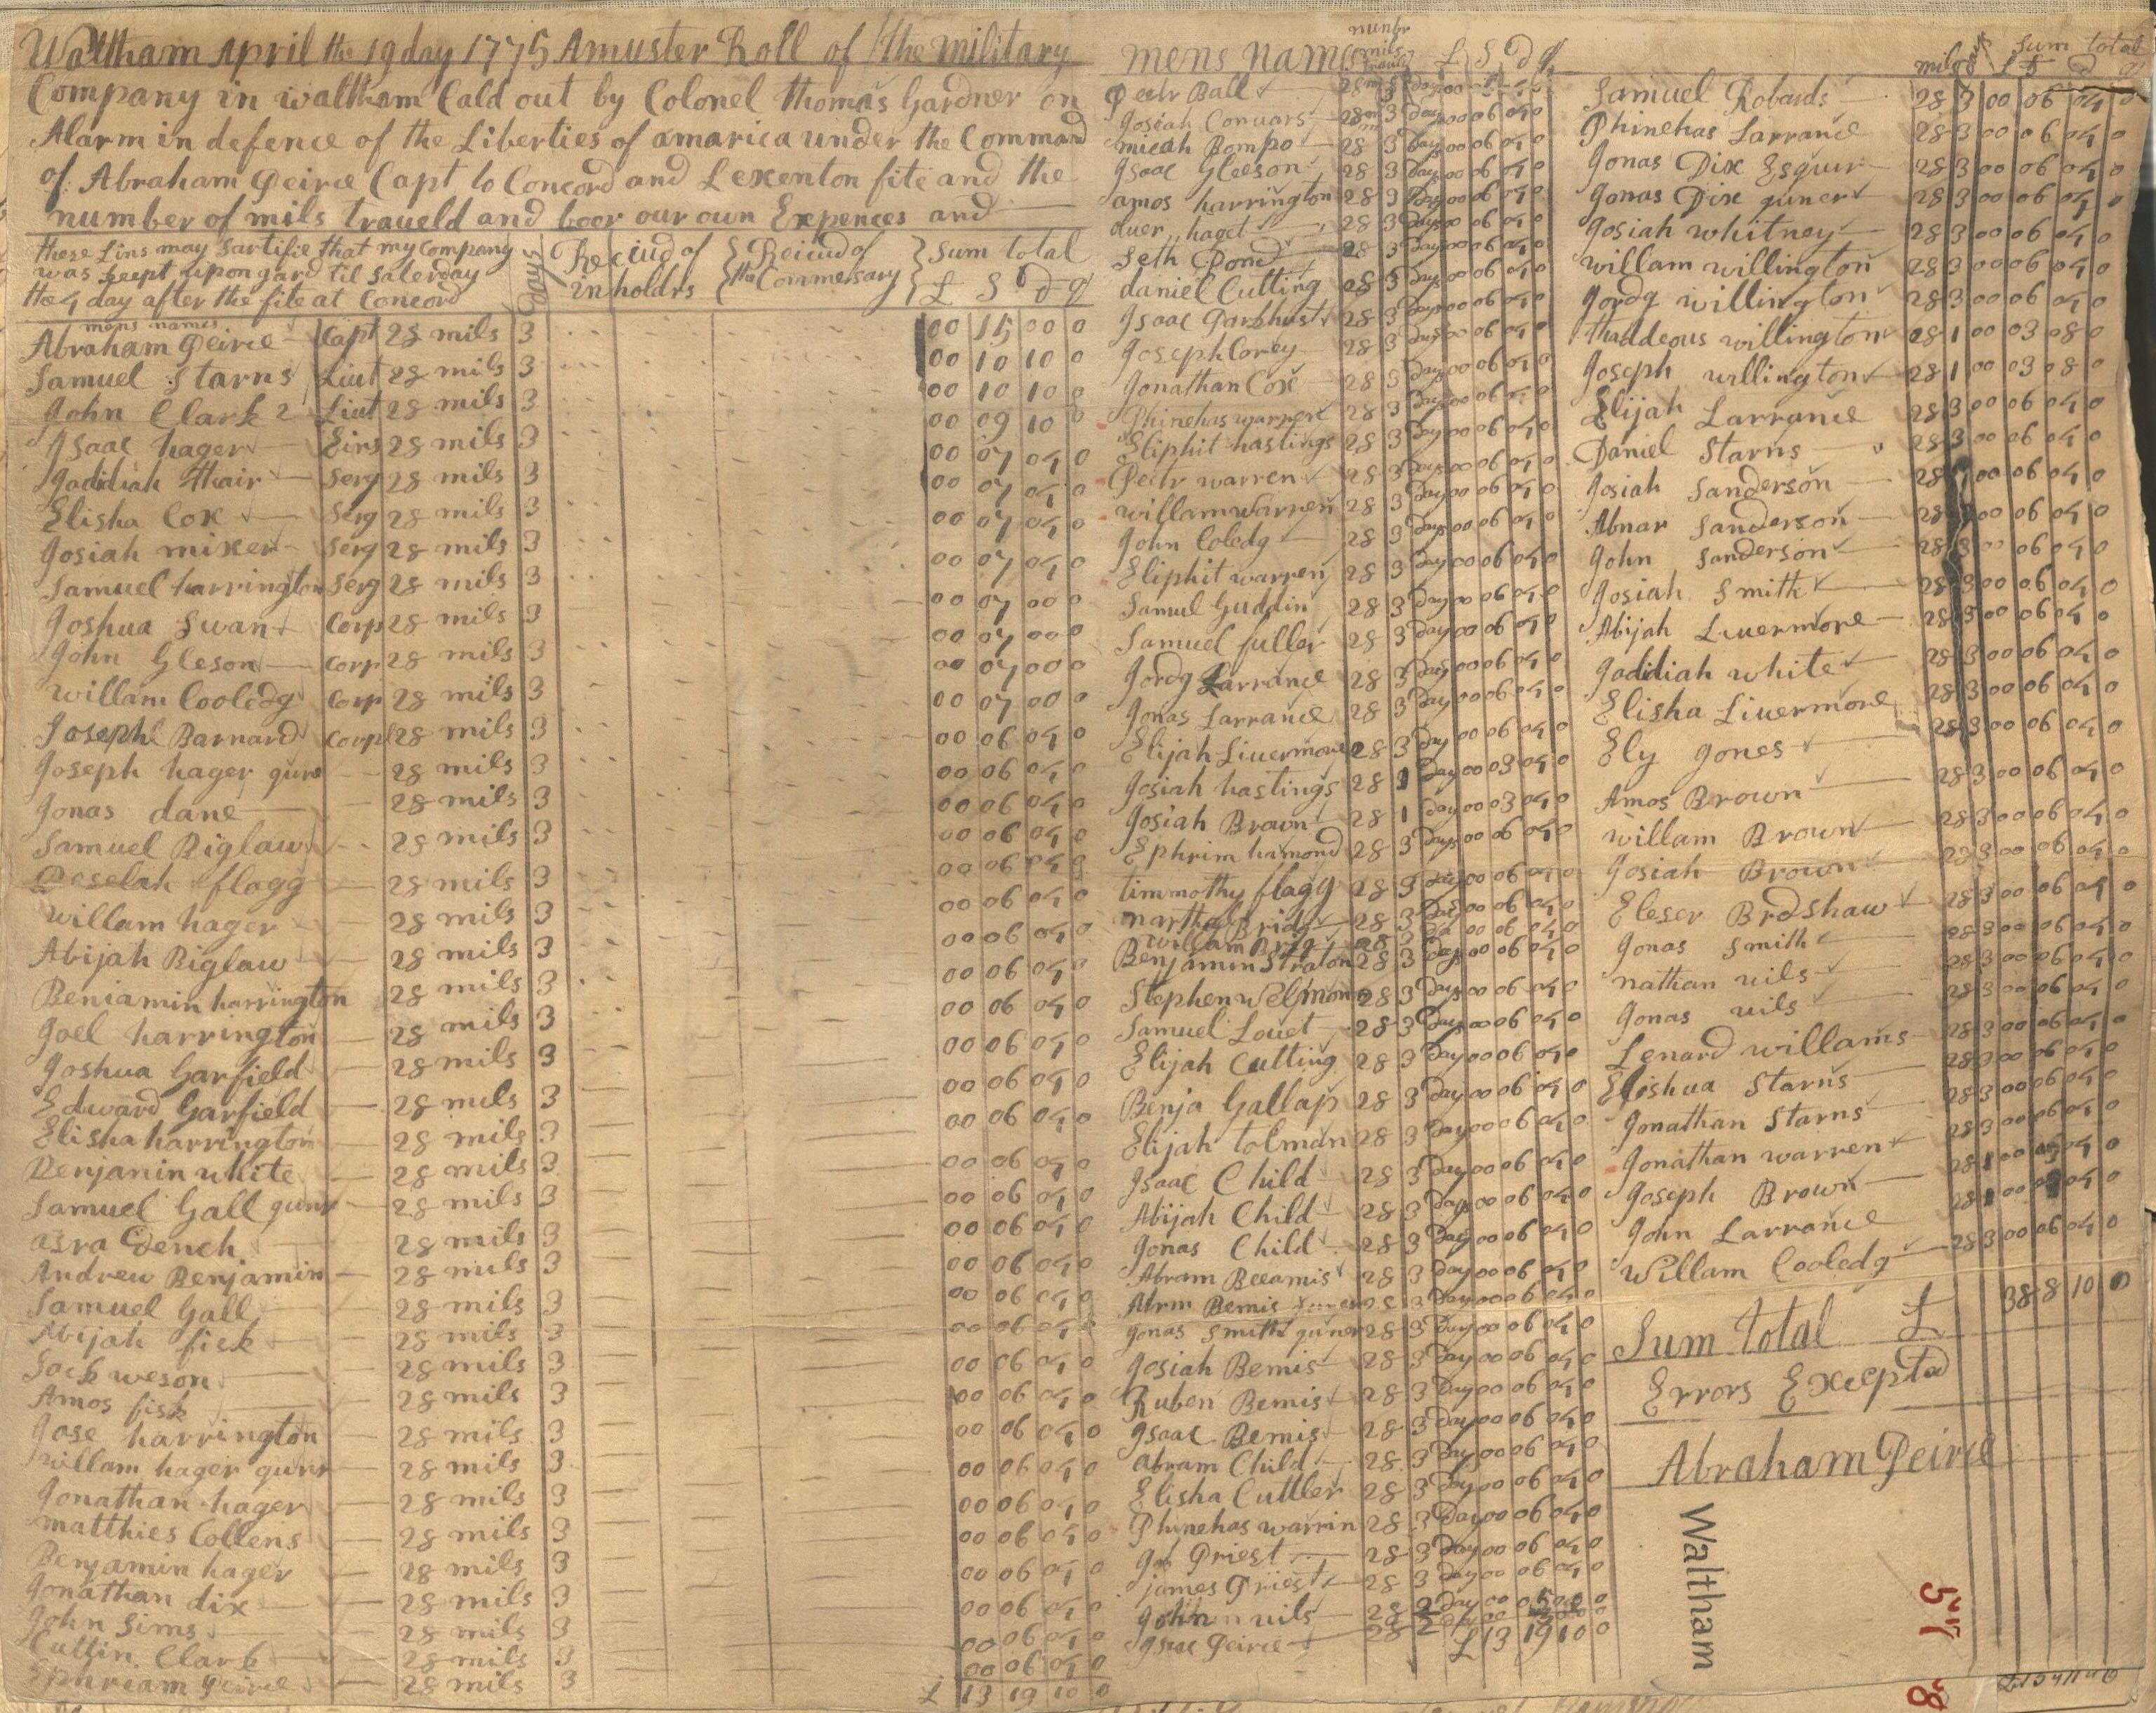 Waltham April the 19 day 1775 A muster Roll of the military
Company in waltham Cald out by Colonel thomas Gardner on
Alarm in defence of the Liberties of amarica under the Command
of Abraham Peirce Capt to Concord and Lexenton fite and the
number of mils traueld and boor our own Expences and
these Lins may Sartifie that my Company
was keept upon gard til Saterday
the 4 day after the fite at Concord
Days
Reciud of
in holdrs
Reciud of
the Commersary
Sum total
£ S D q
mens names
Abraham Peirce Capt 28 mils 3 00 15 00 0
Samuel Starns Liut 28 mils 3 00 10 10 0
John Clark 2 Liut 28 mils 3 00 10 10 0
Isaac hager Eins 28 mils 3 00 09 10 0
Jadidiah thair Serg 28 mils 3 00 07 04 0
Elisha Cox Serg 28 mils 3 00 07 04 0
Josiah mixer Serg 28 mils 3 00 07 04 0
Samuel harrington Serg 28 mils 3 00 07 04 0
Joshua Swan Corp 28 mils 3 00 07 00 0
John Gleson Corp 28 mils 3 00 07 00 0
willam Cooledg Corp 28 mils 3 00 07 00 0
Joseph Barnard Corpl 28 mils 3 00 07 00 0
Joseph hager gunr 28 mils 3 00 06 04 0
Jonas dane 28 mils 3 00 06 04 0
Samuel Biglaw 28 mils 3 00 06 04 0
flagg 28 mils 3 00 06 04 0
willam hager 28 mils 3 00 06 04 0
Abijah Biglaw 28 mils 3 00 06 04 0
Beniamin harrington 28 mils 3 00 06 04 0
Joel harrington 28 mils 3 00 06 04 0
Joshua Garfield 28 mils 3 00 06 04 0
Edward Garfield 28 mils 3 00 06 04 0
Elisha harrington 28 mils 3 00 06 04 0
Benjanin white 28 mils 3 00 06 04 0
Samuel Gall gunr 28 mils 3 00 06 04 0
asra Dench 28 mils 3 00 06 04 0
Andrew Benjamin 28 mils 3 00 06 04 0
Samuel Gall 28 mils 3 00 06 04 0
Abijah fisk 28 mils 3 00 06 04 0
weson 28 mils 3 00 06 04 0
Amos fisk 28 mils 3 00 06 04 0
Jose harrington 28 mils 3 00 06 04 0
willam hager gunr 28 mils 3 00 06 04 0
Jonathan hager 28 mils 3 00 06 04 0
matthies Collens 28 mils 3 00 06 04 0
Benjamin hager 28 mils 3 00 06 04 0
Jonathan dix 28 mils 3 00 06 04 0
John Sims 28 mils 3 00 06 04 0
Cuttin Clark 28 mils 3 00 06 04 0
Ephriam Peirce 28 mils 3
£ 13 19 10 0
mens names
numbr
mils
£ S D q
Petr Ball 28 3 day
Josiah Conuars 28 3 day 00 06 04 0
micah Bompo 28 3 Days 00 06 04 0
Isaac Gleeson 28 3 days 00 06 04 0
amos harrington 28 3 Days 00 06 04 0
haget 28 3 days 00 06 04 0
Seth Pond 28 3 Days 00 06 04 0
daniel Cutting 28 3 days 00 06 04 0
Isaac Parkhust 28 3 days 00 06 04 0
Joseph Corey 28 3 days 00 06 04 0
Jonathan Cox 28 3 Days 00 06 04 0
Phinehas warren 28 3 days 00 06 04 0
Eliphit hastings 28 3 Day 00 06 04 0
Petr warren 28 3 Days 00 06 04 0
willam warren 28 3 Day 00 06 04 0
John Coledg 28 3 Days 00 06 04 0
Eliphit warren 28 3 Day 00 06 04 0
Samul Guddin 28 3 Day 00 06 04 0
Samuel fuller 28 3 Day 00 06 04 0
Jordg Larrance 28 3 Day 00 06 04 0
Jonas Larrance 28 3 Day 00 06 04 0
Elijah Liuermore 28 3 Day 00 06 04 0
Josiah hastings 28 1 Day 00 03 04 0
Josiah Brown 28 1 day 00 03 04 0
Ephrim hamond 28 3 Days 00 06 04 0
timmothy flagg 28 3 day 00 06 04 0
Bridg 28 3 Day 00 06 04 0
willam 28 3 00 06 04 0
Benjamin Straton 28 3 Day 00 06 04 0
Stephen Welmon 28 3 Days 00 06 04 0
Samuel Louet 28 3 Days 00 06 04 0
Elijah Cutting 28 3 Day 00 06 04 0
Benja Gallap 28 3 Day 00 06 04 0
Elijah tolman 28 3 Day 00 06 04 0
Isaac Child 28 3 Day 00 06 04 0
Abijah Child 28 3 Days 00 06 04 0
Jonas Child 28 3 Day 00 06 04 0
Abram Beeamis 28 3 Day 00 06 04 0
Abrm Bemis 28 3 Day 00 06 04 0
Jonas Smith guner 28 3 Day 00 06 04 0
Josiah Bemis 28 3 Day 00 06 04 0
Ruben Bemis 28 3 Day 00 06 04 0
Isaac Bemis 28 3 Day 00 06 04 0
abram Child 28 3 Day 00 06 04 0
Elisha Cuttler 28 3 Day 00 06 04 0
Phinehas warrin 28 3 Day 00 06 04 0
Job Priest 28 3 Day 00 06 04 0
James Priest 28 3 Day 00 06 04 0
John uils 28 2 Day 00
Isac Peirce 28 2
£ 13 19 10 0
mils days Sum total
£ S D q
Samuel Robards 28 3 00 06 04 0
Phinehas Larrance 28 3 00 06 04 0
Jonas Dix Esquir 28 3 00 06 04 0
Jonas Dix guner 28 3 00 06 04 0
Josiah whitney 28 3 00 06 04 0
willam willington 28 3 00 06 04 0
Jordg willington 28 3 00 06 04 0
thaddeous willington 28 1 00 03 08 0
Joseph willington 28 1 00 03 08 0
Elijah Larrance 28 3 00 06 04 0
Daniel Starns 28 3 00 06 04 0
Josiah Sanderson 28 00 06 04 0
Abnar Sanderson 28 00 06 04 0
John Sanderson 28 3 00 06 04 0
Josiah Smith 28 3 00 06 04 0
Abijah Liuermore 28 3 00 06 04 0
Jadidiah white 28 3 00 06 04 0
Elisha Liuermore 28 3 00 06 04 0
Ely Jones 28 3 00 06 04 0
Amos Brown 28 3 00 06 04 0
willam Brown 28 3 00 06 04 0
Josiah Brown 28 3 00 06 04 0
Eleser Brdshaw 28 3 00 06 04 0
Jonas Smith 28 3 00 06 04 0
nathan uils 28 3 00 06 04 0
Jonas uils 28 3 00 06 04 0
Lenard willams 28 3 00 06 04 0
Starns 28 3 00 06 04 0
Jonathan Starns 28 3 00 06 04 0
Jonathan warren 28 3 00 06 04 0
Joseph Brown 28 1 00 04 0
John Larrance 28 1 00 04 0
Willam Cooledg 28 3 00 06 04 0
Sum total £ 38 8 10 0
Errors Excepted
Abraham Peirce
Waltham
57
8